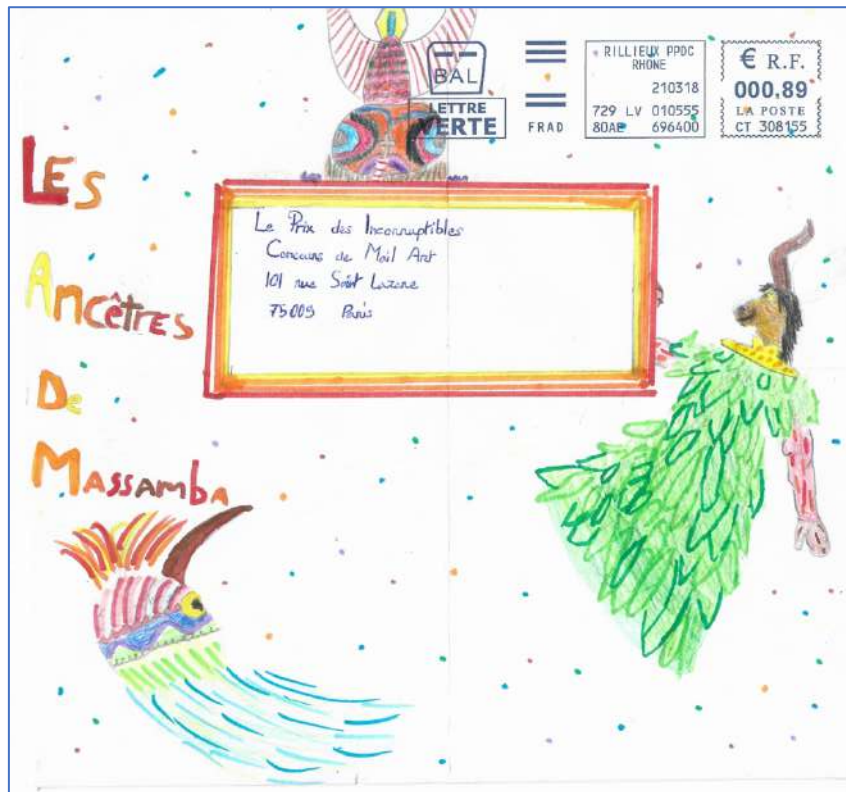 BAL
LETTRE
VERTE
FRAD
RILLIEUX PPDC
RHONE
210318
729 LV 010555
80AE 696400
€ R.F.
000,89
LA POSTE
CT 308155
LES
ANCÊTRES
De
MASSAMba
Le Prix des Incorruptibles
Concours de Mail Art
101 rue Saint Lazare
75009 Paris